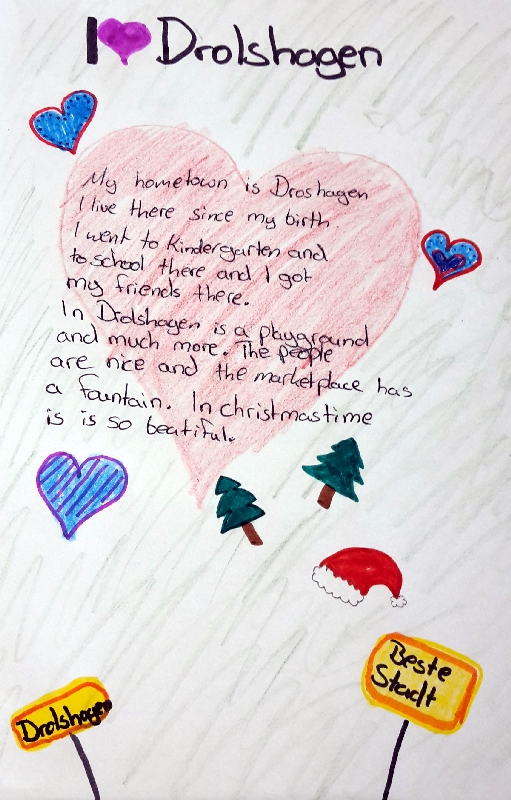 I Drolshagen
My hometown is Droshagen
I live there since my birth.
I went to Kindergarten and
to school there and I got
my friends there.
In Drolshagen is a playground
and much more. The people
are nice and the marketplace has
a fountain. In christmastime
is is so beatiful.
Beste
Stadt
Drolshagen